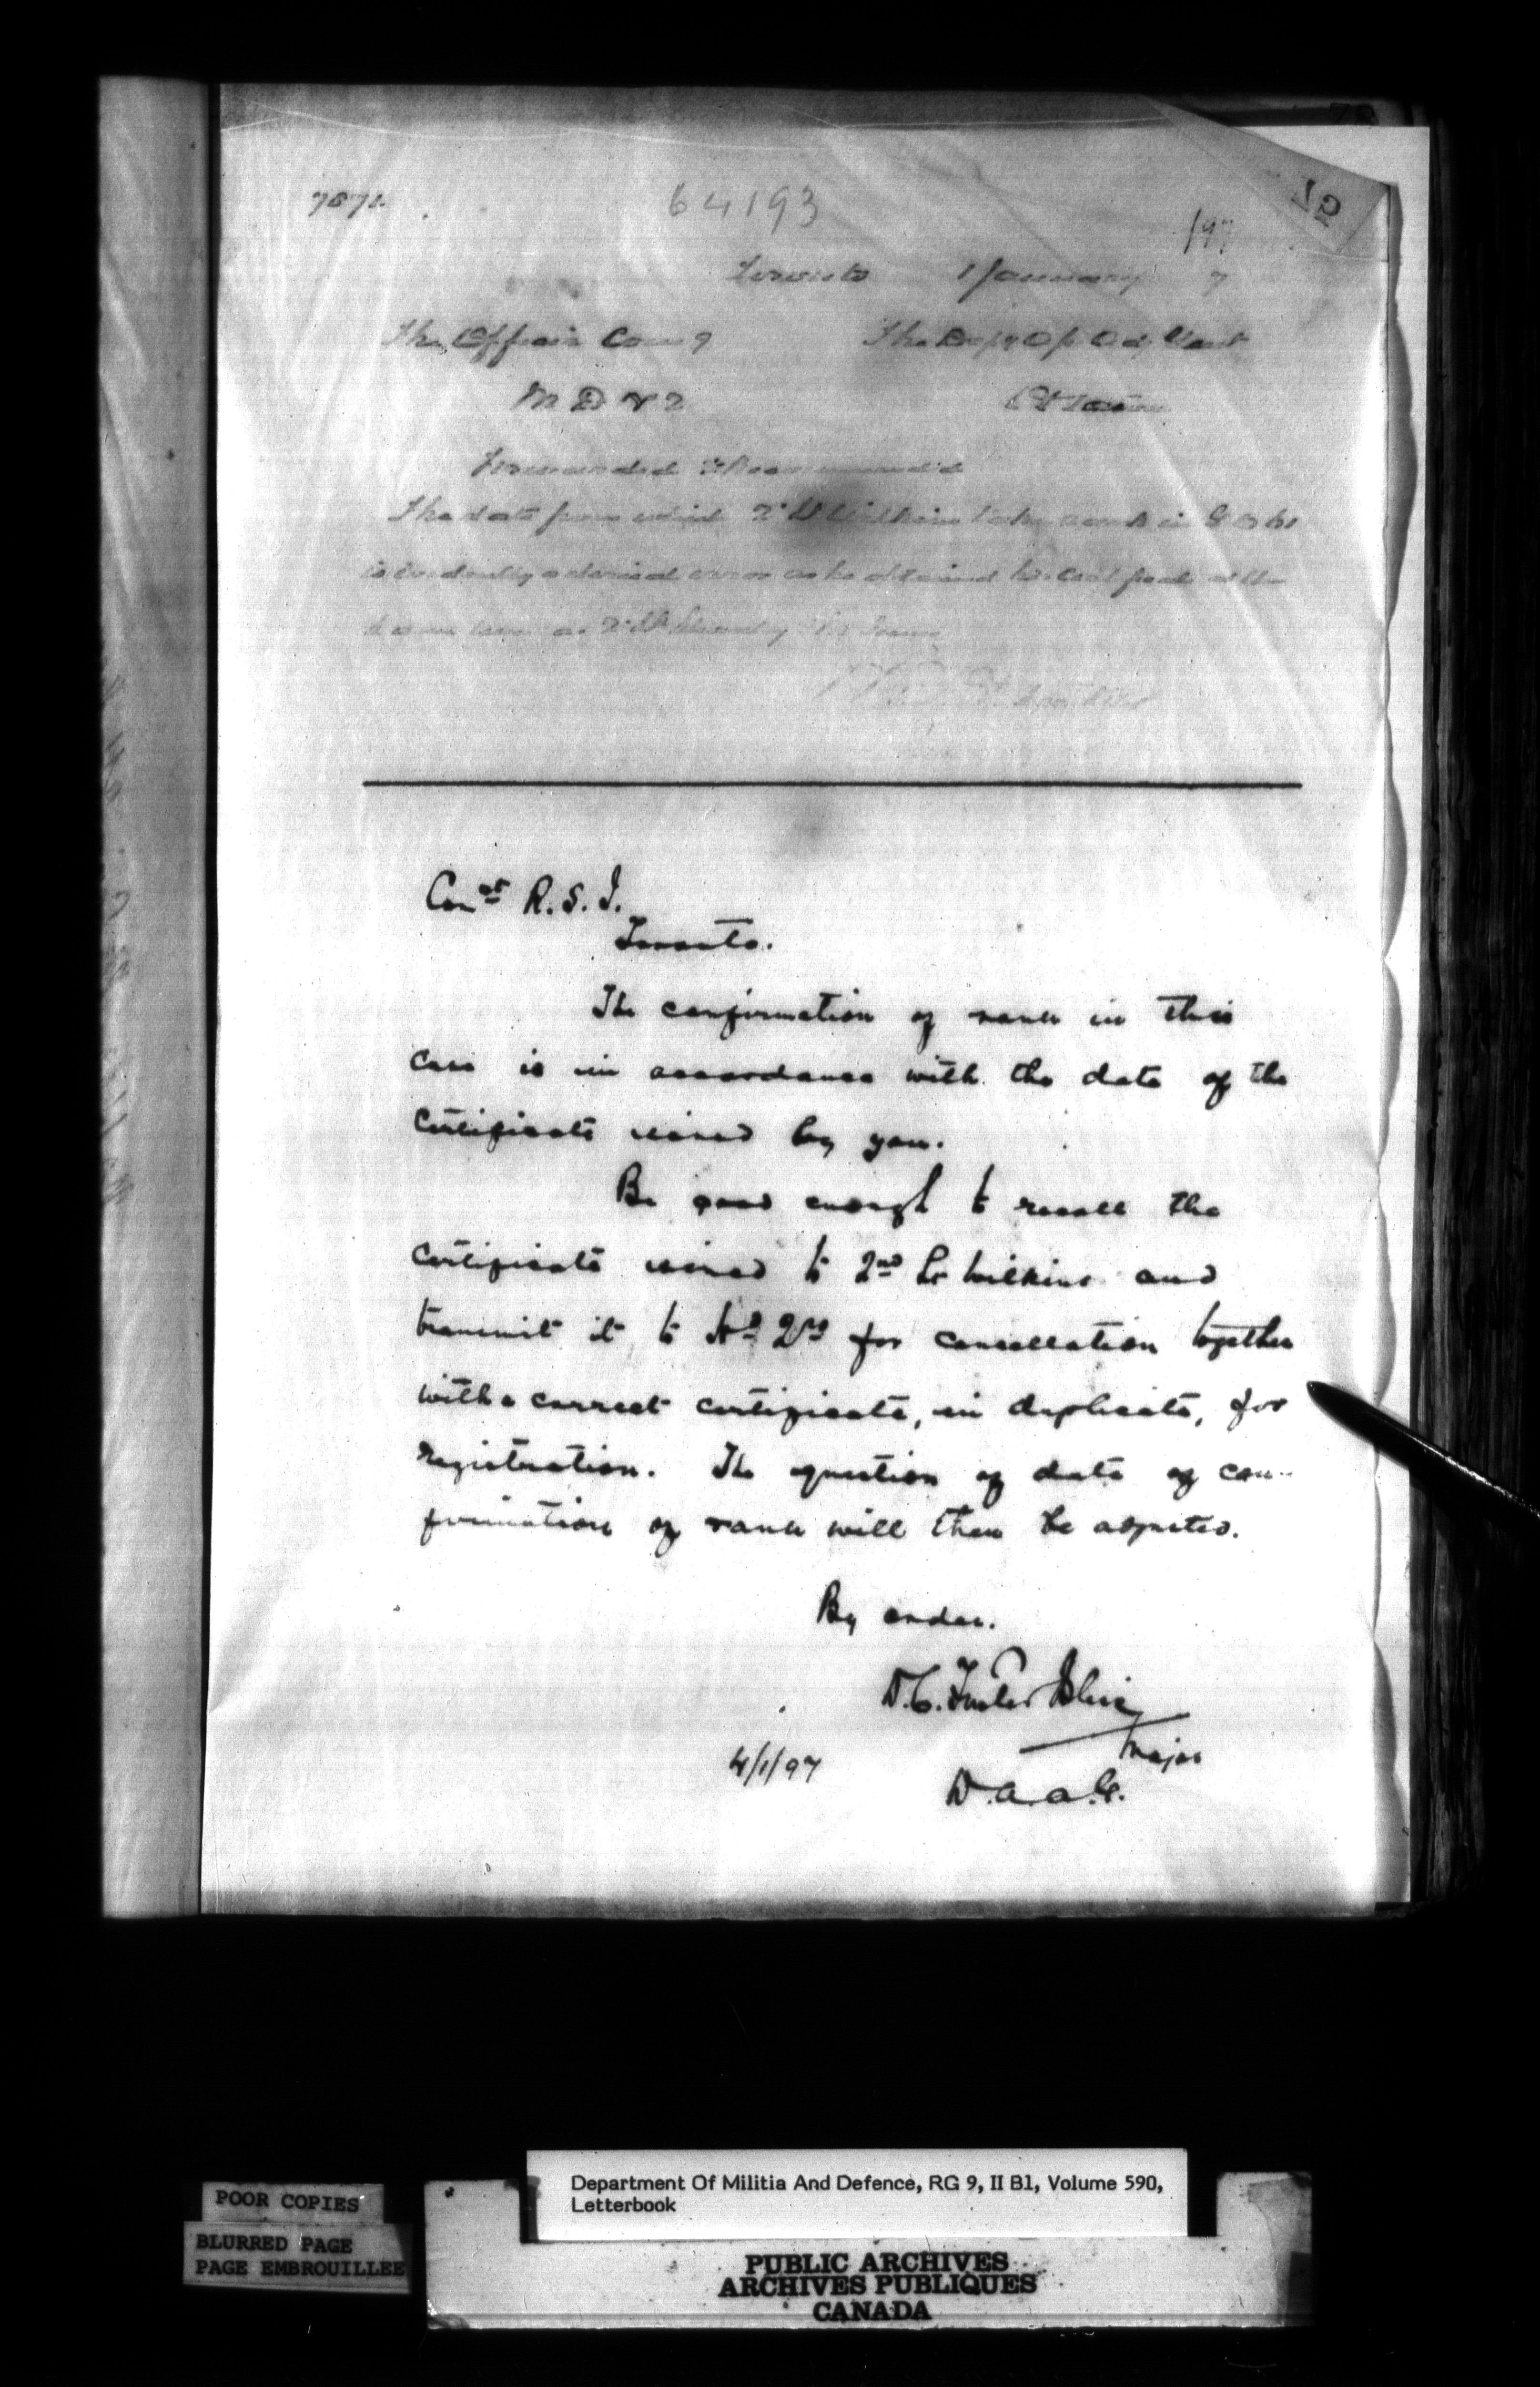 7871.
64193
197
Toronto 1 January 7
The Officer Comg The Depy Adjutant
M D No 2 Ottawa
Forwarded & Recommended
The date from which 2nd Lt Wilkins takes rank in G O 61
is evidently a clerical error as he obtained his certificate at the
same time as 2nd Lt
Comdt R. S. I.
Toronto.
The confirmation of rank in this
case is in accordance with the date of the
certificate issued by you.
Be good enough to recall the
certificate issued to 2nd Lt Wilkins and
transmit it to Hd Qrs for cancellation together
with a correct certificate, in duplicate, for
registration. The question of date of con-
firmation of rank will then be adjusted.
By order.
D. C. Forster Bliss
Major
4/1/97
D. A. A. G.
POOR COPIES
BLURRED PAGE
PAGE EMBROUILLEE
Department Of Militia And Defence, RG 9, II B1, Volume 590,
Letterbook
PUBLIC ARCHIVES
ARCHIVES PUBLIQUES
CANADA